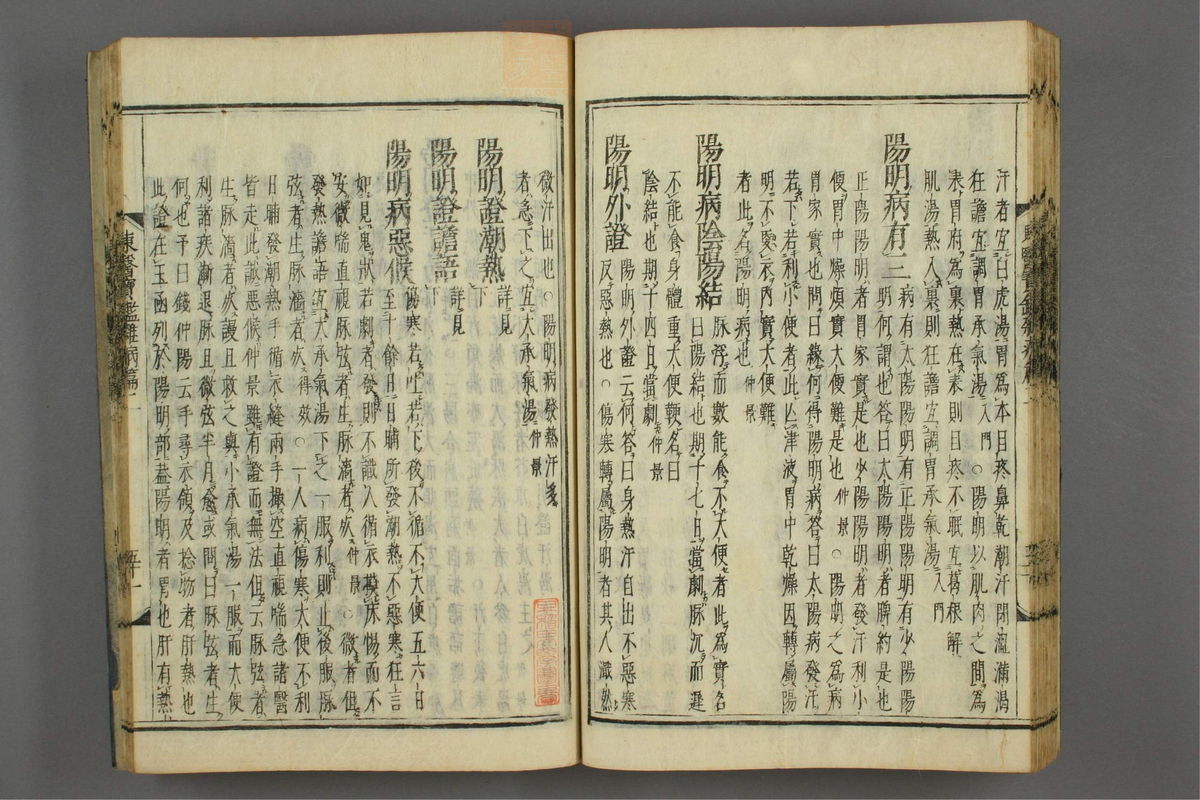 汗者宜白虎湯胃爲本目疼鼻乾潮汗閉澁滿渴
狂譫宜調胃承氣湯入門○陽明以肌肉之間爲
表胃府爲裏熱在表則目疼不眠宜葛根解
肌湯熱入裏則狂譫宜調胃承氣湯入門
陽明病有三 病有太陽陽明有正陽陽明有少陽陽
明何謂也答曰太陽陽明者脾約是也
正陽陽明者胃家實是也少陽陽明者發汗利小
便胃中燥煩實大便難是也仲景○陽明之爲病
胃家實也問曰緣何得陽明病答曰太陽病發汗
若下若利小便者此亡津液胃中乾燥因轉屬陽
明不更衣內實大便難
者此名陽明病也仲景
陽明病陰陽結 脉浮而數能食不大便者此爲實名
曰陽結也期十七日當劇脉沉而遲
不能食身體重大便鞕名曰
陰結也期十四日當劇仲景
陽明外證 陽明外證云何答曰身熱汗自出不惡寒
反惡熱也○傷寒轉屬陽明者其人濈然
微汗出也○陽明病發熱汗多
者急下之宜大承氣湯仲景
陽明證潮熱 詳見下
陽明證譫語 詳見下
陽明病惡候 傷寒若吐若下後不循不大便五六日
至十餘日日晡所發潮熱不惡寒狂言
如見鬼狀若劇者發則不識人循衣摸床惕而不
安微喘直視脉弦者生脉濇者死仲景○微者但
發熱譫語宜大承氣湯下之一服利則止後服脉
弦者生脉濇者死得效○一人病傷寒大便不利
日晡發潮熱手循衣縫兩手撮空直視喘急諸醫
皆走此誠惡候仲景雖有證而無法但云脉弦者
生脉濇者死謾且救之與小承氣湯一服而大便
利諸疾漸退脉且微弦半月愈或問曰脉弦者生
何也予曰錢仲陽云手尋衣領及捻物者肝熱也
此證在玉函列於陽明部盖陽明者胃也肝有熱
東醫寶鑑雜病篇二